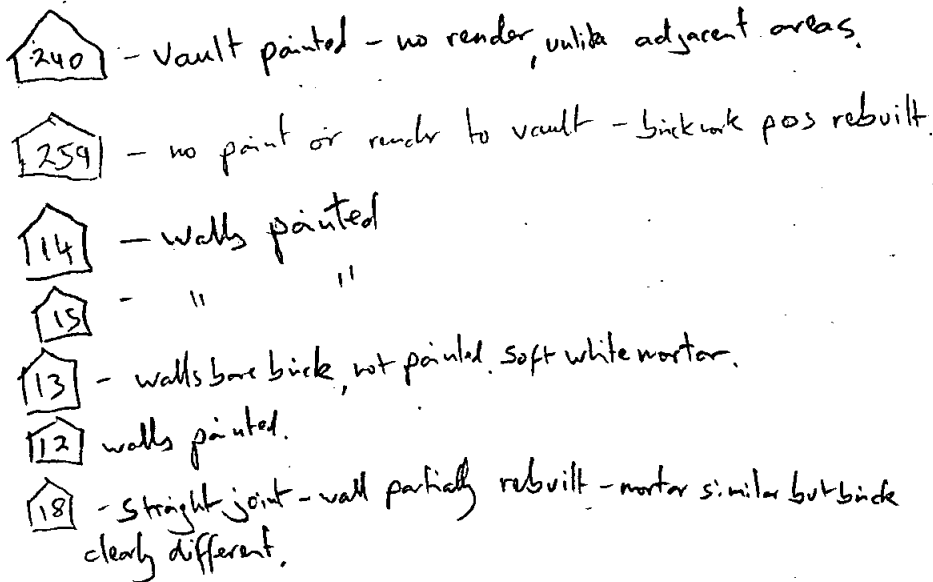 240 - Vault painted - no render, unlike adjacent areas.
259 - no paint or render to vault - brickwork pos rebuilt.
14 - walls painted
15 - " "
13 - walls bare brick, not painted. Soft white mortar.
12 walls painted.
18 - straight joint - wall partially rebuilt - mortar similar but brick
clearly different.